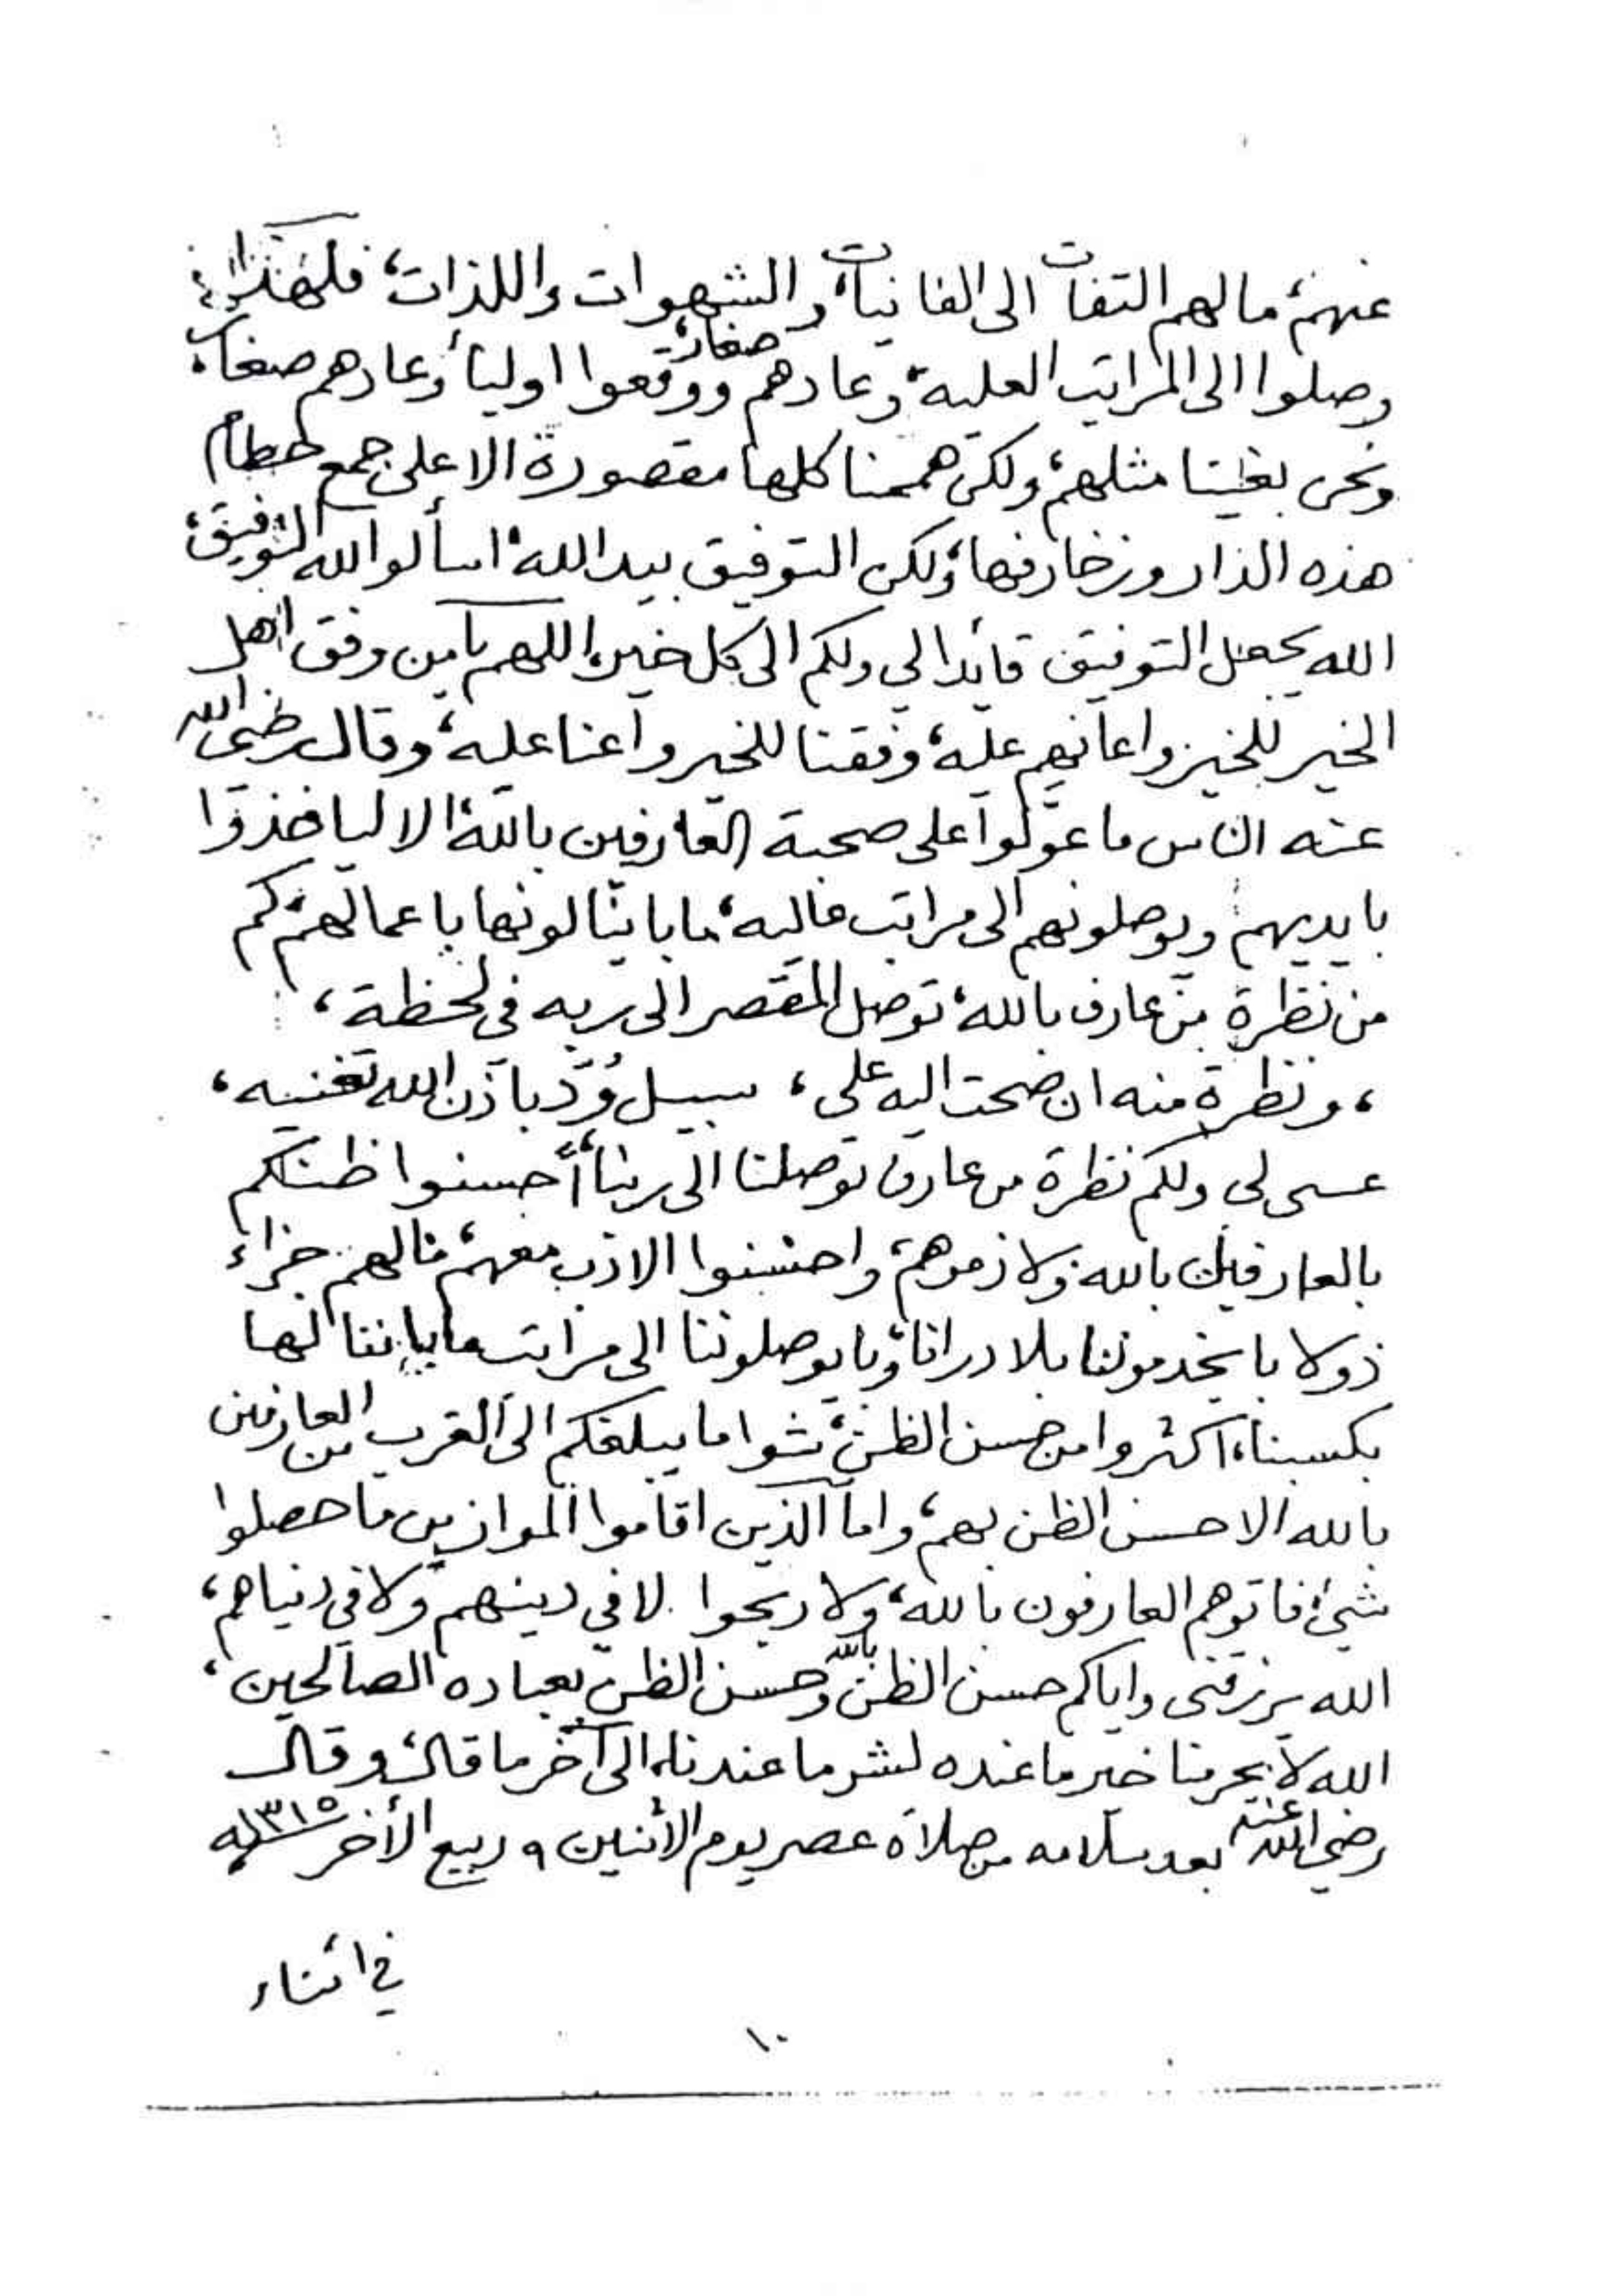 عنهم، مالهم التفات الى الفانيات، والشهوات واللذات، فلهذا
وصلوا الى المراتب العليه، وعادهم صغار، ووقعوا اوليأ وعادهم صغار،
ونحن بغينا مثلهم، ولكن هممنا كلها مقصورة الا على جمع حطام
هذه الدار وزخارفها، ولكن التوفيق بيد الله، اسألوا الله التوفيق،
الله يجعل التوفيق قائدا لي ولكم الى كل خير، اللهم يامن وفق اهل
الخير للخير واعانهم عليه، وفقنا للخير واعنا عليه، وقال رضي الله
عنه الناس ما عوّلوا على صحبة العارفين بالله، الا ليأخذوا
بايديهم ويوصلونهم الى مراتب عاليه، ما باينالونها باعمالهم، كم
من نظرة من عارف بالله، توصل المقصر الى ربه في لحظة،
، ونظرة منه ان صحت اليه على، سبيل وُدّ باذن الله تغنيه،
عسى لي ولكم نظرة من عارف توصلنا الى ربنا، أحسنوا ظنكم
بالعارفين بالله، ولازموهم، واحسنوا الادب معهم، مالهم جزاء
ذولا بايخدموننا بلا دراهم، وبايوصلوننا الى مراتب مابانتنالها
بكسبنا، اكثروا من حسن الظن، شوا ما يبلغكم الى القرب من العارفين
بالله الا حسن الظن بهم، واما الذين اقاموا الموازين ما حصلوا
شيئ، فاتوهم العارفون بالله، ولا ربحوا لا في دينهم ولا في دنياهم،
الله يرزقني واياكم حسن الظن بالله وحسن الظن بعباده الصالحين،
الله لا يحرمنا خير ما عنده لشر ما عندنا، الى آخر ما قال، وقال
رضي الله عنه بعد سلامه من صلاة عصر يوم الاثنين ٩ ربيع الأخر سنة ١٣١٥ه
في اثناء
١٠